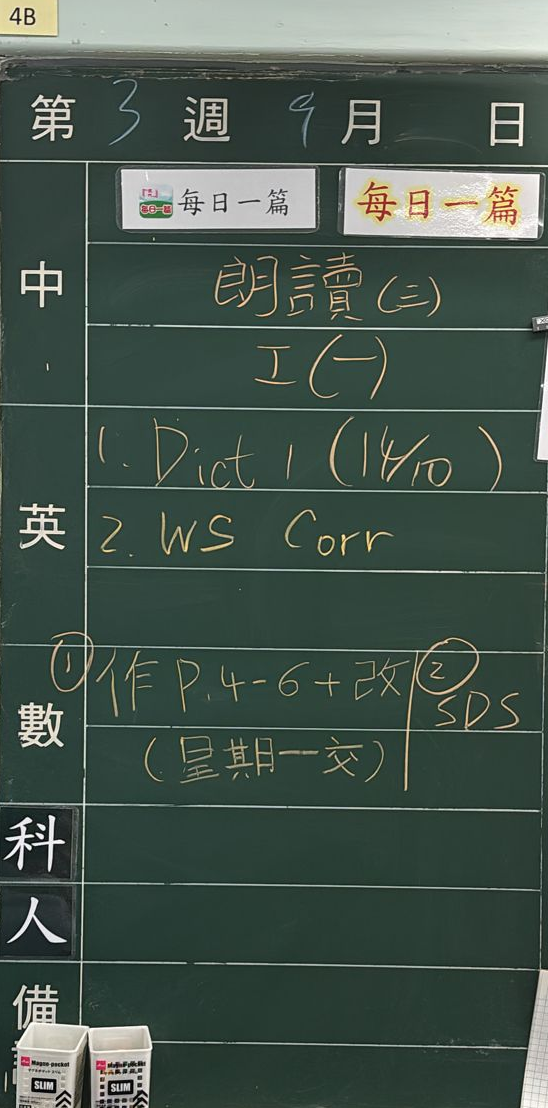 4B
第 3 週 9 月 日
每日一篇 每日一篇
中
朗讀(三)
工(一)
英
1. Dict 1 (14/10)
2. WS Corr
數
① 作 P.4-6 + 改 ② SDS
(星期一交)
科
人
備
Magne-pocket
SLIM
SLIM